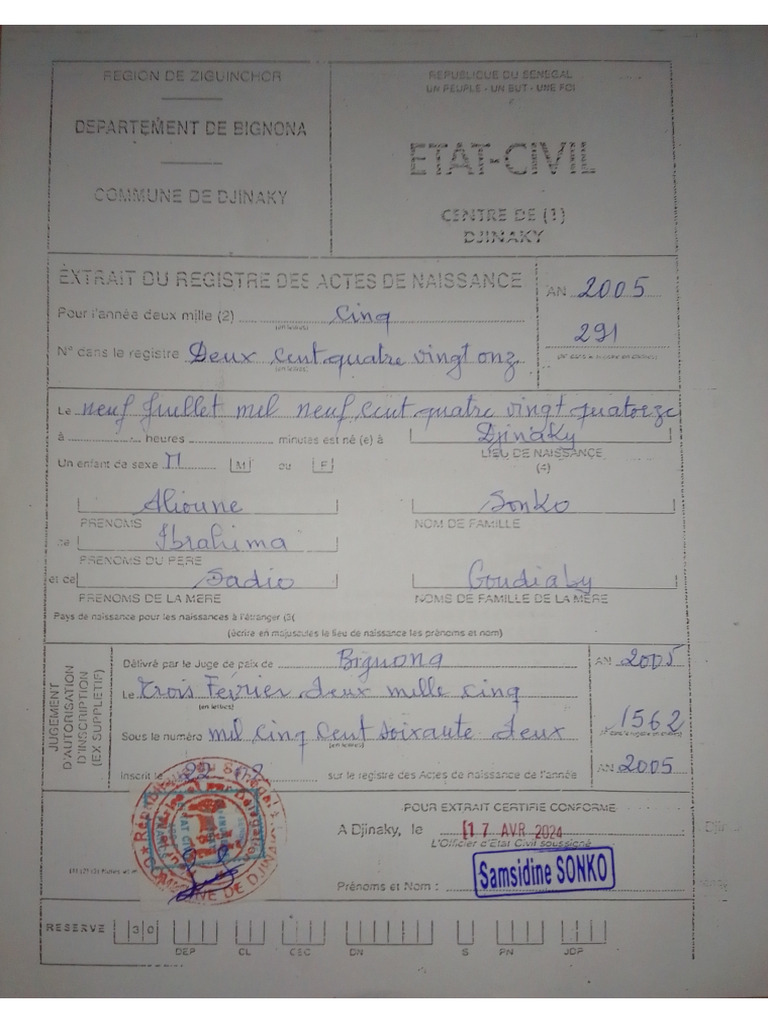 REGION DE ZIGUINCHOR
DEPARTEMENT DE BIGNONA
COMMUNE DE DJINAKY
REPUBLIQUE DU SENEGAL
UN PEUPLE - UN BUT - UNE FOI
ETAT-CIVIL
CENTRE DE (1)
DJINAKY
EXTRAIT DU REGISTRE DES ACTES DE NAISSANCE
AN 2005
Pour l'année deux mille (2) Cinq
(en lettres)
291
N° dans le registre Deux Cent quatre vingt onz
(en lettres)
Le neuf Juillet mil neuf cent quatre vingt quatorze
à heures minutes est né (e) à Djinaky
LIEU DE NAISSANCE
(4)
Un enfant de sexe M M ou F
Alioune Sonko
PRENOMS NOM DE FAMILLE
de Ibrahima
PRENOMS DU PERE
et de Sadio Goudiaby
PRENOMS DE LA MERE NOMS DE FAMILLE DE LA MERE
Pays de naissance pour les naissances à l'étranger (3(
(écrire en majuscules le lieu de naissance les prénoms et nom)
JUGEMENT
D'AUTORISATION
D'INSCRIPTION
(EX SUPPLETIF)
Délivré par le Juge de paix de Bignona AN 2005
Le trois Février deux mille cinq
(en lettres)
1562
Sous le numéro mil cinq cent soixante deux
(en lettres)
Inscrit le 22 sur le registre des Actes de naissance de l'année AN 2005
POUR EXTRAIT CERTIFIE CONFORME
A Djinaky, le 17 AVR 2024
L'Officier d'Etat Civil soussigné
Prénoms et Nom : Samsidine SONKO
RESERVE 30
DEP CL CEC DN S PN JDP